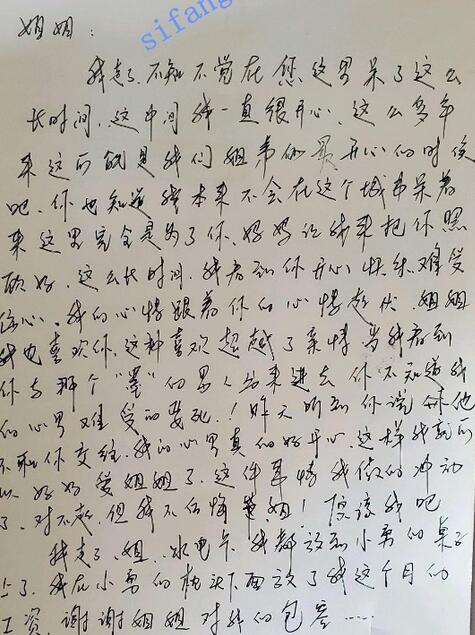 sifang
姐姐：
我走了，不知不觉在您这里呆了这么
长时间，这中间我一直很开心，这么多年
来这可能是我们姐弟俩最开心的时候
吧，你也知道我本来不会在这个城市呆着
来这里完全是为了你，妈妈让我来把你照
顾好，这么长时间，我看到你开心快乐难受
伤心，我的心情跟着你的心情起伏，姐姐
我也喜欢你，这种喜欢超越了亲情，当我看到
你与那个“墨”的男人出来进去你不知道我
的心里难受的要死！昨天听到你说你他
不和你交往，我的心里真的好开心，这样我就可
以好好爱姐姐了，这件事情我做的冲动
了，对不起，但我不后悔，姐姐！原谅我吧
我走了，姐，水电卡我都放到小勇的桌子
上了，我在小勇的枕头下面放了我这个月的
工资，谢谢姐姐对我的包容……